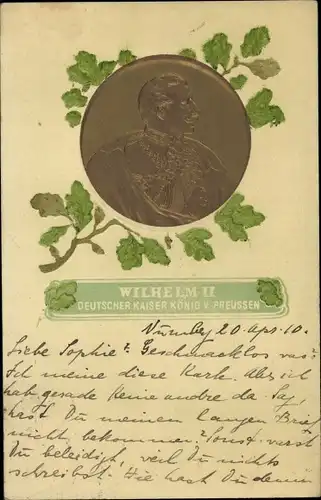 WILHELM II
DEUTSCHER KAISER KÖNIG V. PREUSSEN
20. Apr. 10.
Liebe Sophie! Geschmacklos was?
Ich meine diese Karte. Aber ich
hab gerade keine andre da. Sag,
hast Du meinen langen Brief
nicht bekommen? Sonst
Du beleidigt, weil Du nichts
schreibst. Wie hast Du denn